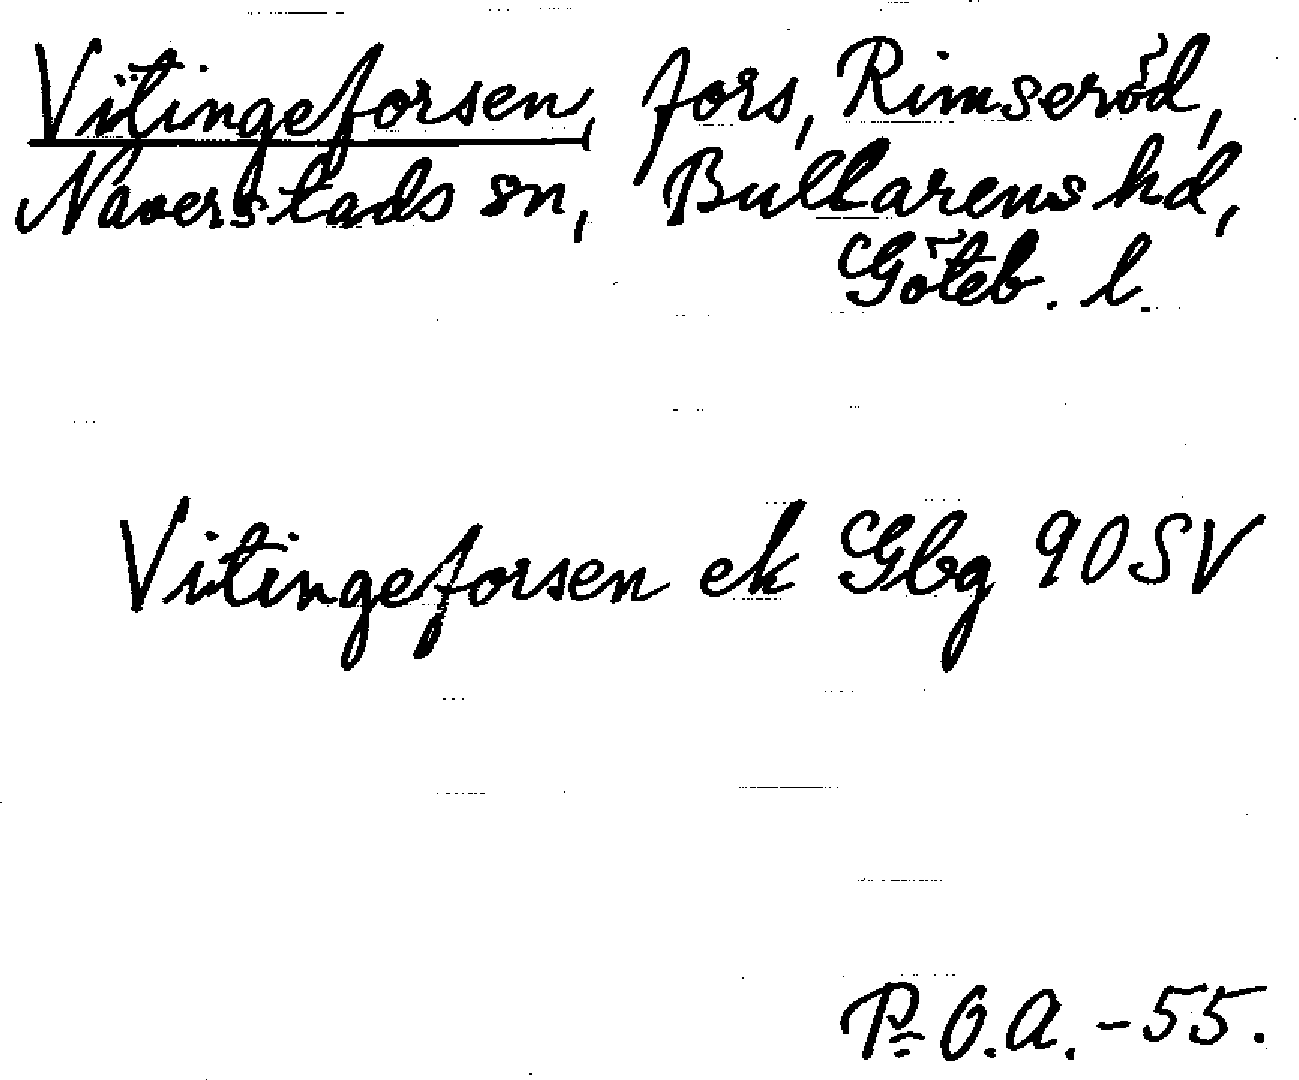 Vitingeforsen, fors, Rimseröd,
Naverstads sn, Bullarens hd,
Göteb. l.
Vitingeforsen ek Gbg 90SV
P.O.A. -55.